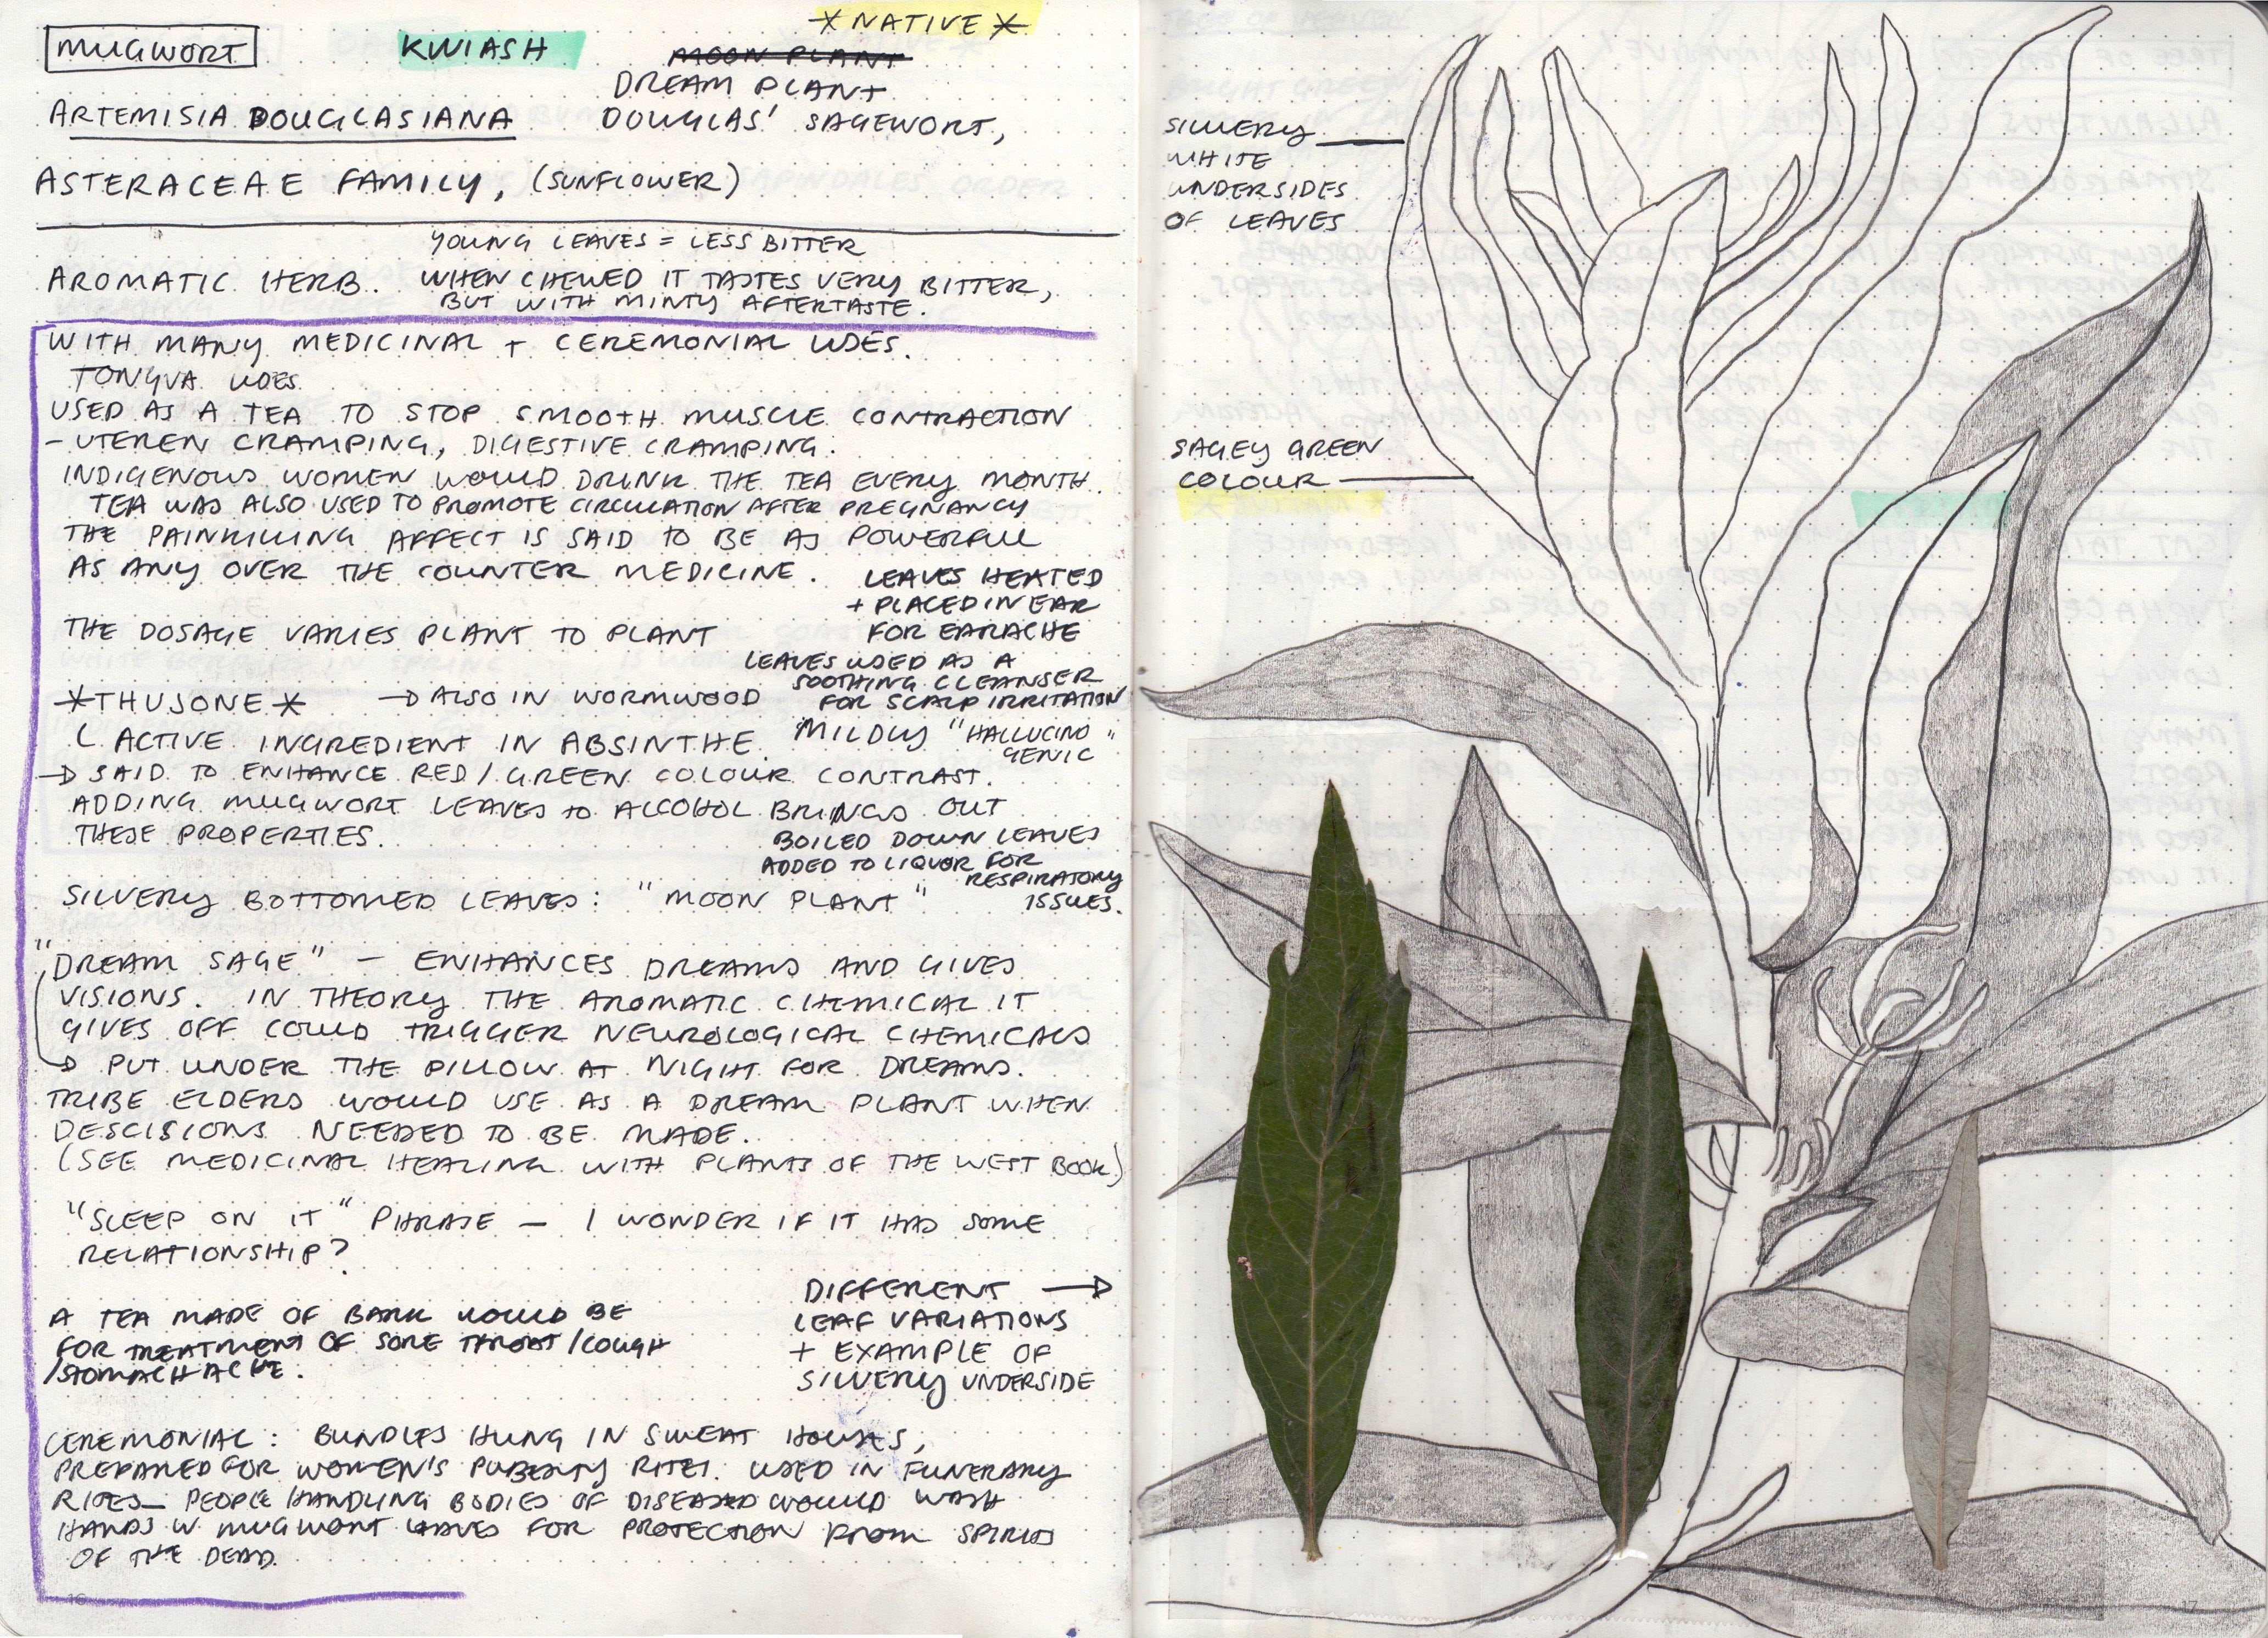 MUGWORT
KWIASH
*NATIVE*
MOON PLANT
DREAM PLANT
ARTEMISIA DOUGLASIANA
DOUGLAS' SAGEWORT,
ASTERACEAE FAMILY, (SUNFLOWER)
YOUNG LEAVES = LESS BITTER
AROMATIC HERB. WHEN CHEWED IT TASTES VERY BITTER,
BUT WITH MINTY AFTERTASTE.
WITH MANY MEDICINAL + CEREMONIAL USES.
TONGVA USES
USED AS A TEA TO STOP SMOOTH MUSCLE CONTRACTION
- UTEREN CRAMPING, DIGESTIVE CRAMPING.
INDIGENOUS WOMEN WOULD DRINK THE TEA EVERY MONTH.
TEA WAS ALSO USED TO PROMOTE CIRCULATION AFTER PREGNANCY
THE PAINKILLING AFFECT IS SAID TO BE AS POWERFULL
AS ANY OVER THE COUNTER MEDICINE.
LEAVES HEATED
+ PLACED IN EAR
FOR EARACHE
THE DOSAGE VARIES PLANT TO PLANT
LEAVES USED AS A
SOOTHING CLEANSER
FOR SCALP IRRITATION
*THUJONE* → ALSO IN WORMWOOD
( ACTIVE INGREDIENT IN ABSINTHE. MILDLY "HALLUCINO
GENIC"
→ SAID TO ENHANCE RED/GREEN COLOUR CONTRAST.
ADDING MUGWORT LEAVES TO ALCOHOL BRINGS OUT
THESE PROPERTIES.
BOILED DOWN LEAVES
ADDED TO LIQUOR FOR
RESPIRATORY
ISSUES.
SILVERY BOTTOMED LEAVES: "MOON PLANT"
"DREAM SAGE" - ENHANCES DREAMS AND GIVES
VISIONS. IN THEORY THE AROMATIC CHEMICAL IT
GIVES OFF COULD TRIGGER NEUROLOGICAL CHEMICALS
→ PUT UNDER THE PILLOW AT NIGHT FOR DREAMS.
TRIBE ELDERS WOULD USE AS A DREAM PLANT WHEN
DESCISIONS NEEDED TO BE MADE.
(SEE MEDICINAL HEALING WITH PLANTS OF THE WEST BOOK)
"SLEEP ON IT" PHRASE - I WONDER IF IT HAS SOME
RELATIONSHIP?
DIFFERENT →
LEAF VARIATIONS
+ EXAMPLE OF
SILVERY UNDERSIDE
A TEA MADE OF BARK WOULD BE
FOR TREATMENT OF SORE THROAT/COUGH
/STOMACH ACHE.
CEREMONIAL: BUNDLES HUNG IN SWEAT HOUSES,
PREPARED FOR WOMEN'S PUBERTY RITES. USED IN FUNERARY
RITES- PEOPLE HANDLING BODIES OF DISEASED WOULD WASH
HANDS W. MUGWORT LEAVES FOR PROTECTION FROM SPIRITS
OF THE DEAD.
16
SILVERY
WHITE
UNDERSIDES
OF LEAVES
SAGEY GREEN
COLOUR
17